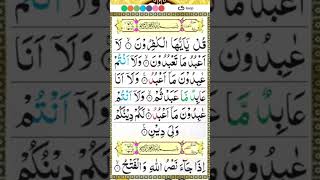 قُلْ يٰۤاَيُّهَا الْكٰفِرُوْنَ ۙ لَاۤ
اَعْبُدُ مَا تَعْبُدُوْنَ ۙ وَلَاۤ اَنْتُمْ
عٰبِدُوْنَ مَاۤ اَعْبُدُ ۚ وَلَاۤ اَنَا
عَابِدٌ مَّا عَبَدْتُّمْ ۙ وَلَاۤ اَنْتُمْ
عٰبِدُوْنَ مَاۤ اَعْبُدُ ؕ لَكُمْ دِيْنُكُمْ
وَلِيَ دِيْنِ
اِذَا جَآءَ نَصْرُ اللّٰهِ وَالْفَتْحُ